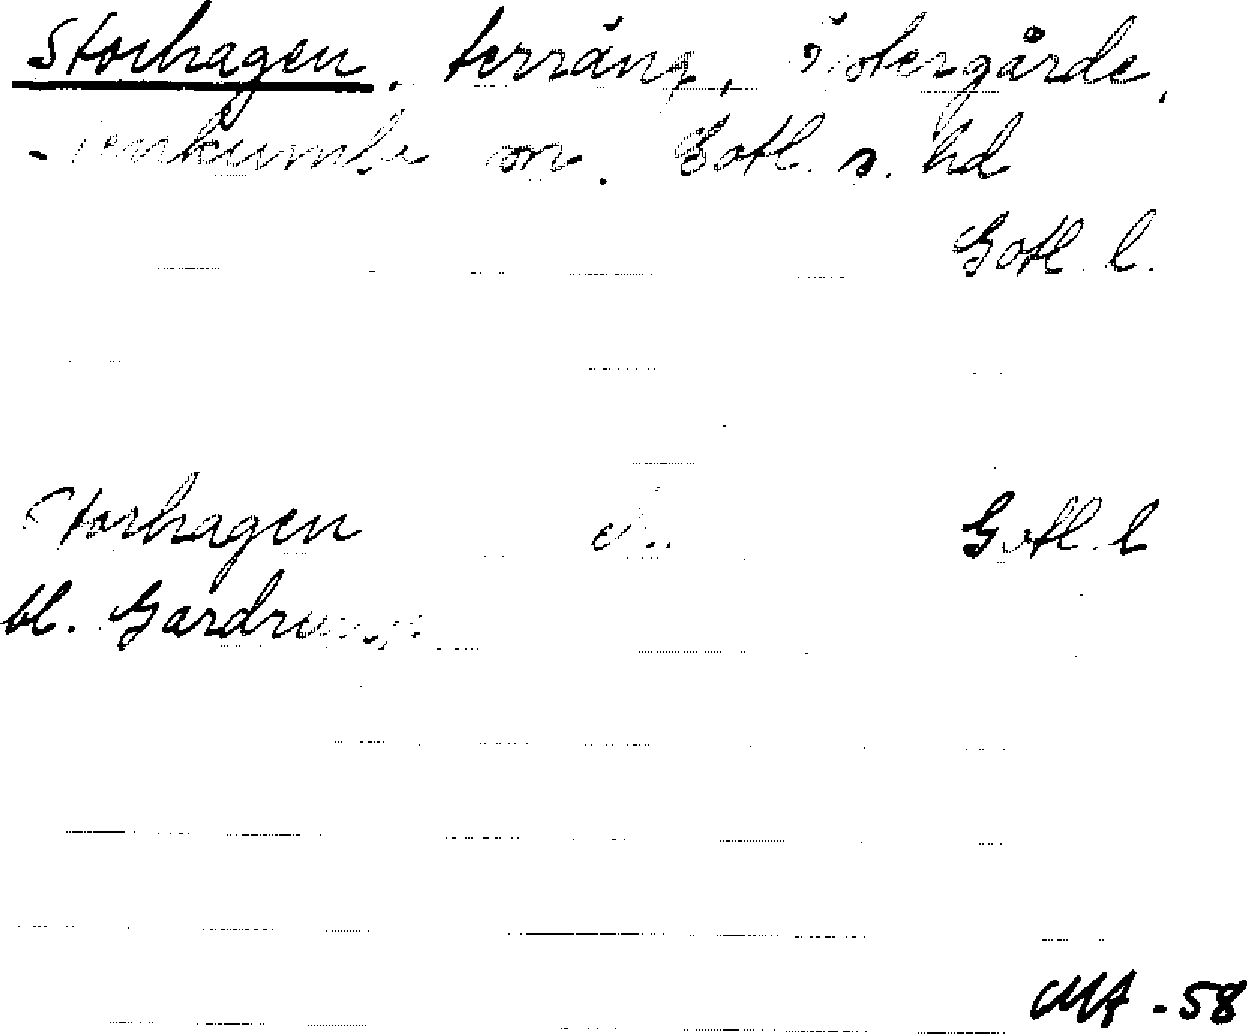 Storhagen, terräng, Östergårde,
Stenkumla sn. Gotl. s. hd
Gotl. l.
Storhagen ek. Gotl. l
bl. Gardrungs
MA - 58